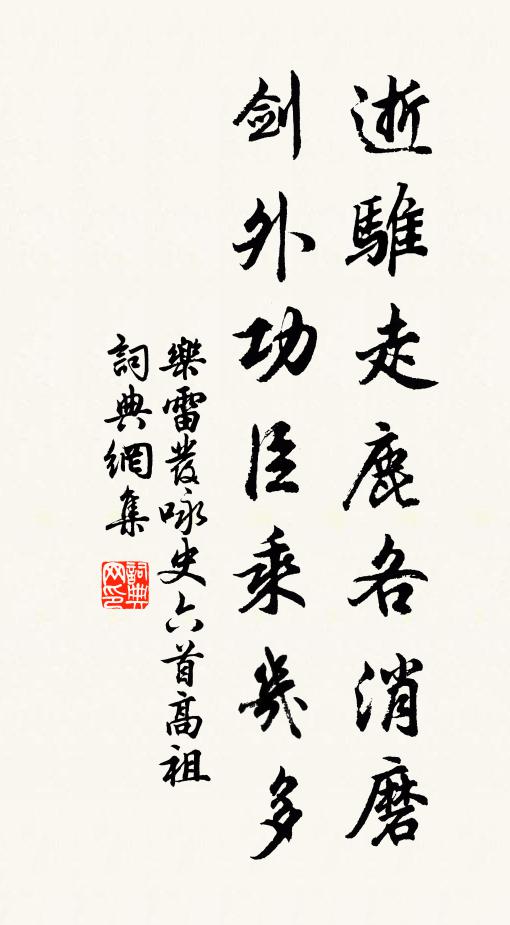 逝騅走鹿各消磨
劍外功臣乘幾多
樂雷發詠史六首高祖
詞典網集
詞典
网印